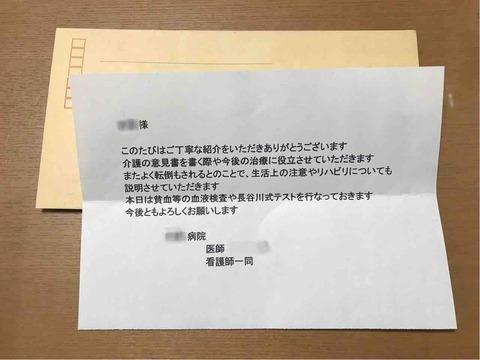 様
このたびはご丁寧な紹介をいただきありがとうございます
介護の意見書を書く際や今後の治療に役立させていただきます
またよく転倒もされるとのことで、生活上の注意やリハビリについても
説明させていただきます
本日は貧血等の血液検査や長谷川式テストを行なっておきます
今後ともよろしくお願いします
病院
医師
看護師一同